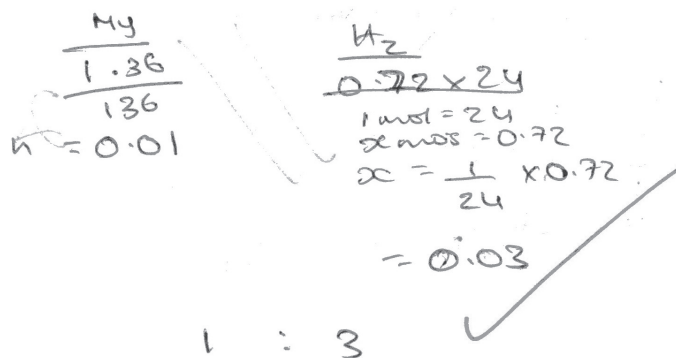 My
1.36
136
n = 0.01
H2
0.72 x 24
1 mol = 24
x mos = 0.72
x = 1/24 x 0.72
= 0.03
1 : 3